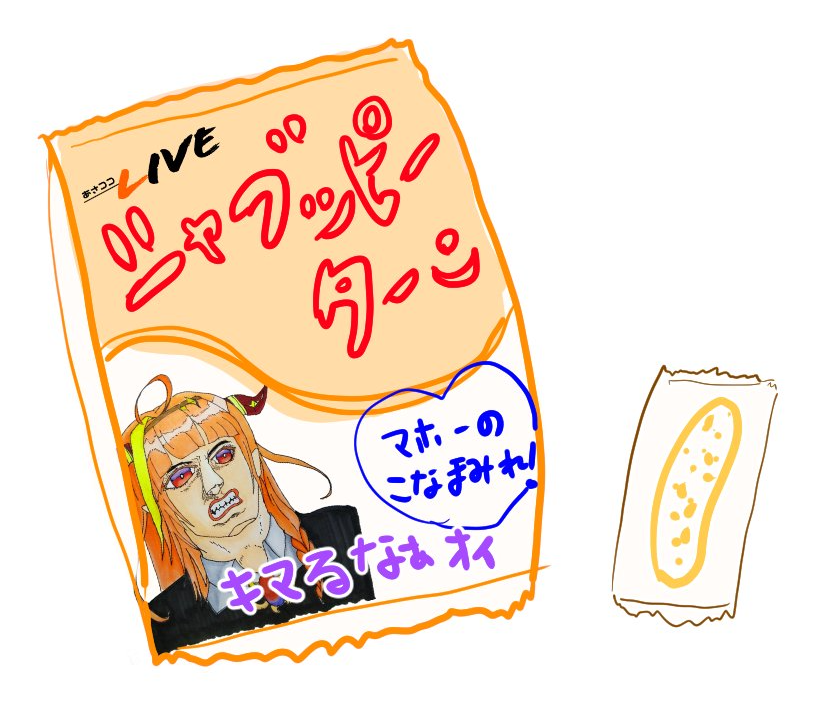 あさココLIVE
シャブッピー
ターン
マホーの
こなまみれ!
キマるなぁオイ